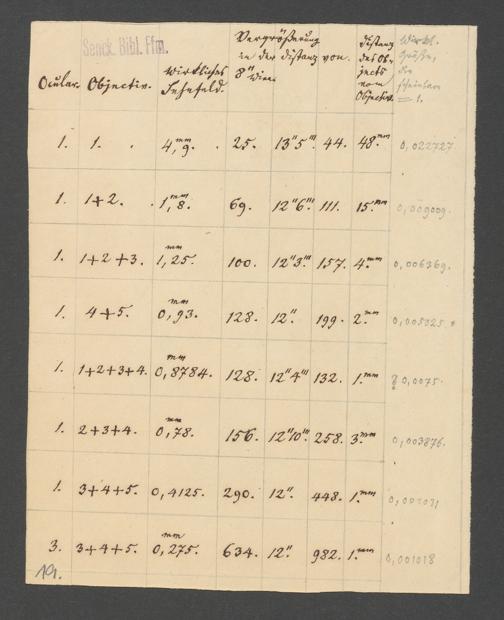 Senck. Bibl. Ffm.
Ocular. Objectiv. Wirkliches Sehefeld. Vergrößerung in der Distanz von 8" Wien. Distanz des Objects vom Objectiv. Wirkl. Größe, die scheinbare = 1.
1. 1. 4,9.mm 25. 13"5''' 44. 48.mm 0,022727
1. 1+2. 1,8.mm 69. 12"6''' 111. 15.mm 0,009009.
1. 1+2+3. 1,25.mm 100. 12"3''' 157. 4.mm 0,006369.
1. 4+5. 0,93.mm 128. 12". 199. 2.mm 0,005025.
1. 1+2+3+4. 0,8784.mm 128. 12"4''' 132. 1.mm ? 0,0075.
1. 2+3+4. 0,78.mm 156. 12"10''' 258. 3.mm 0,003876.
1. 3+4+5. 0,4125. 290. 12". 448. 1.mm
3. 3+4+5. 0,275.mm 634. 12". 982. 1.mm 0,001018
19.